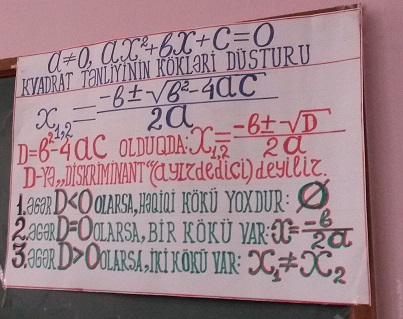 a≠0, ax²+bx+c=0
KVADRAT TƏNLİYİNİN KÖKLƏRİ DÜSTURU
x₁,₂ = (-b±√b²-4ac)/2a
D=b²-4ac OLDUQDA: x₁,₂ = (-b±√D)/2a
D-YƏ „DİSKRİMİNANT“ (ayırdedici) deyilir.
1. əgər D<0 OLARSA, HƏQİQİ KÖKÜ YOXDUR: Ø
2. əgər D=0 OLARSA, BİR KÖKÜ VAR: x = -b/2a
3. əgər D>0 OLARSA, İKİ KÖKÜ VAR: x₁≠x₂